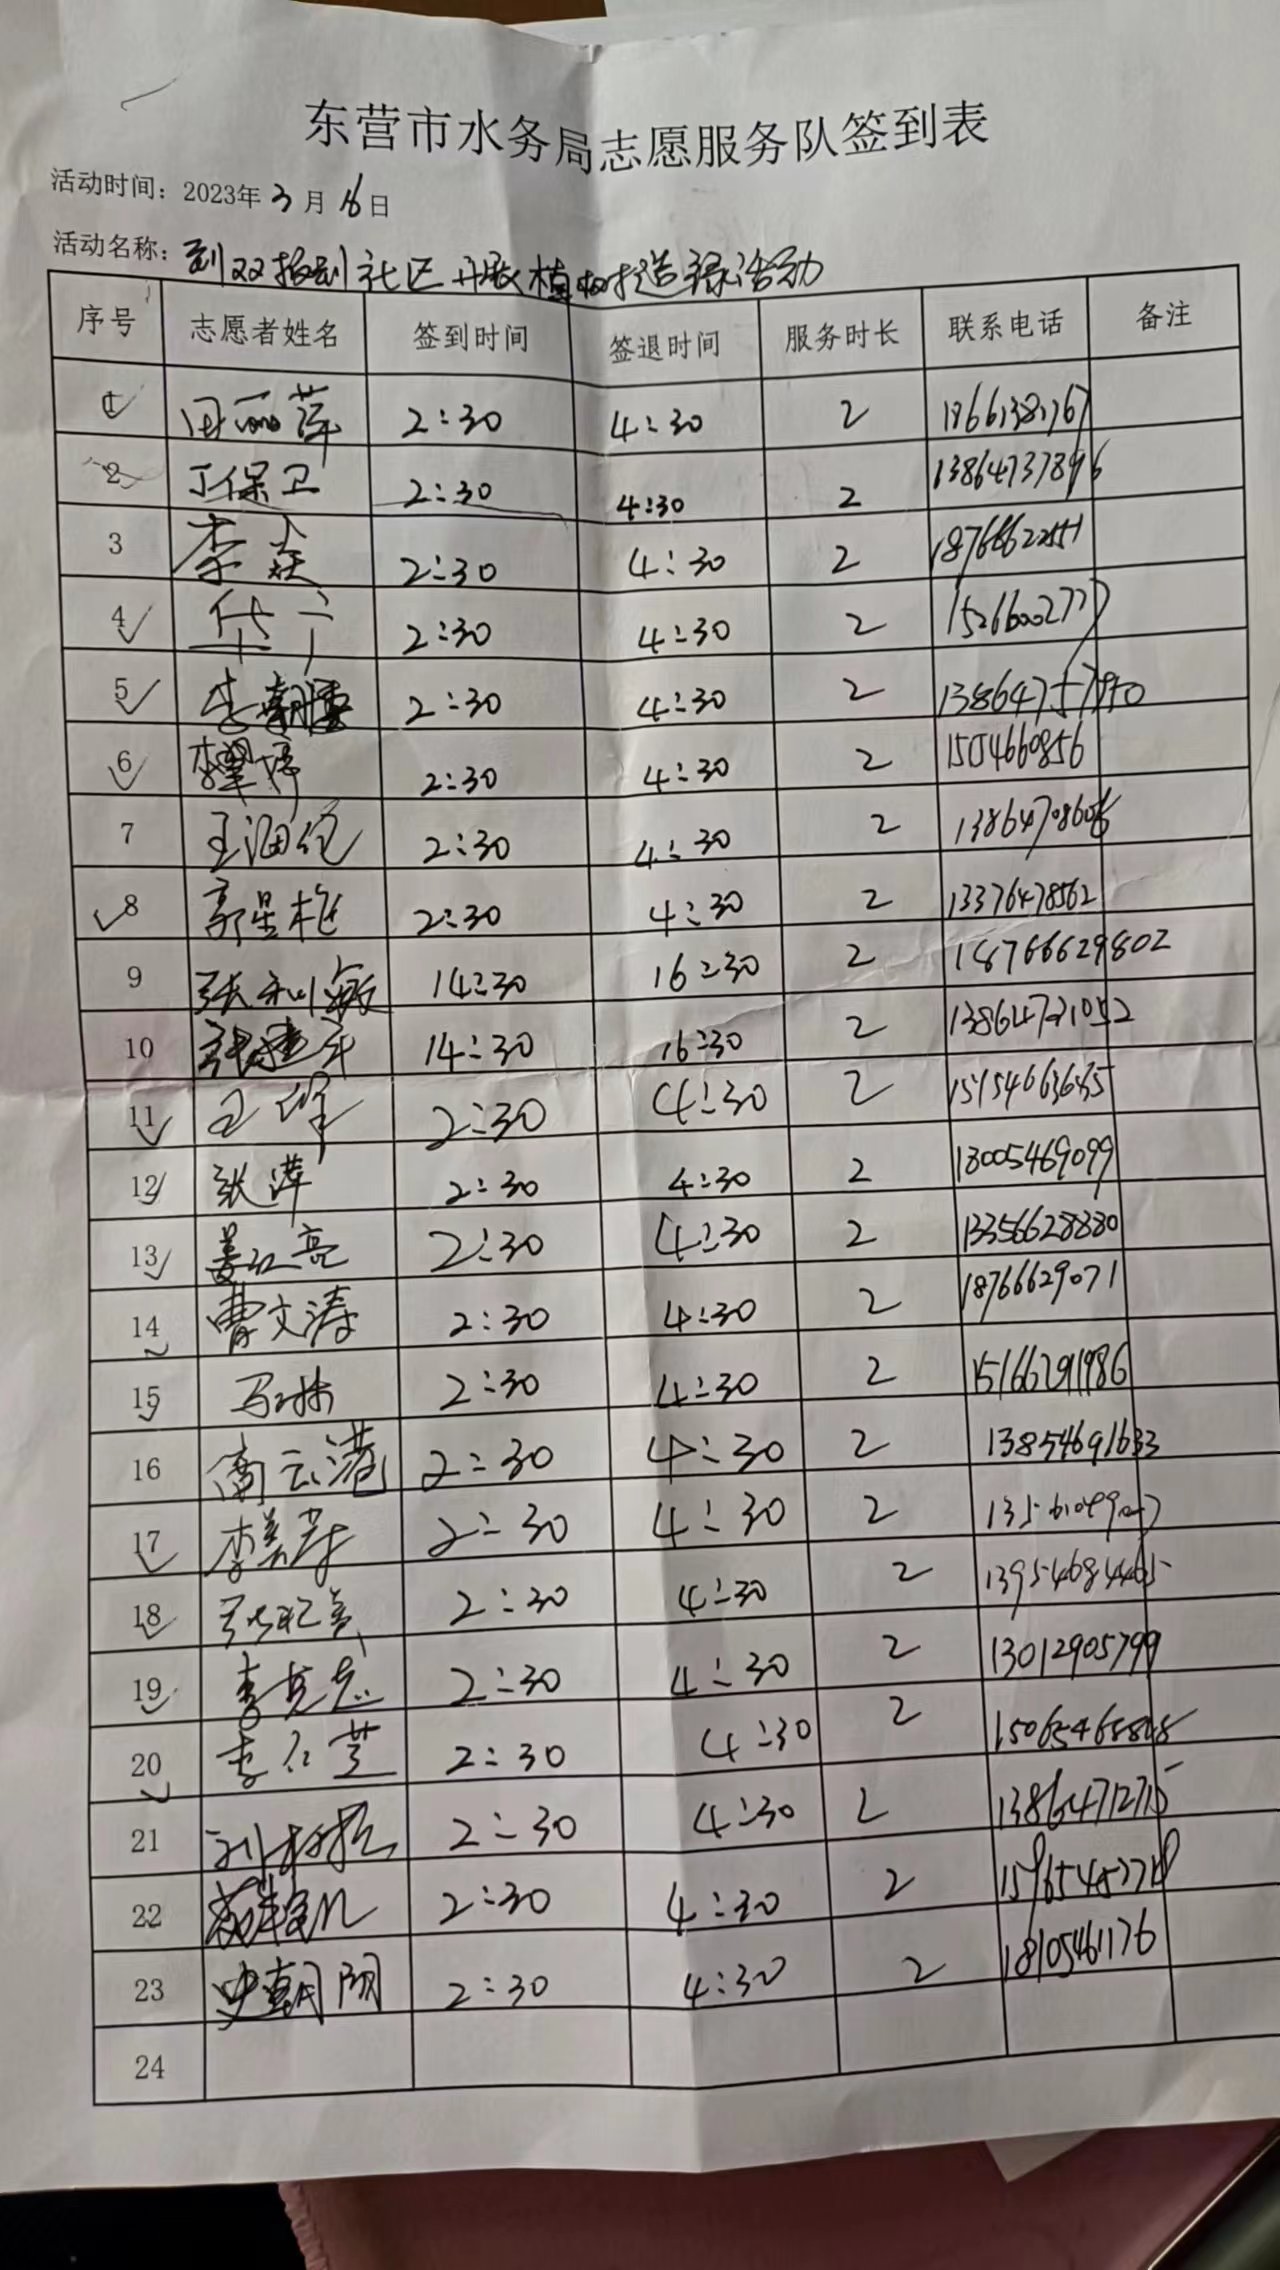 东营市水务局志愿服务队签到表
活动时间：2023年3月16日
活动名称：到双报到社区开展植树造绿活动
序号 志愿者姓名 签到时间 签退时间 服务时长 联系电话 备注
1 田丽萍 2:30 4:30 2
2 丁保卫 2:30 4:30 2 13864737896
3 李焱 2:30 4:30 2 18766622551
4 2:30 4:30 2 15266002777
5 李朝霞 2:30 4:30 2
6 李翠婷 2:30 4:30 2 1504660856
7 2:30 4:30 2
8 郭星 2:30 4:30 2 13376478562
9 张利敏 14:30 16:30 2 18766629802
10 张建军 14:30 16:30 2 13864731052
11 王峰 2:30 4:30 2
12 张萍 2:30 4:30 2 18005469099
13 姜红亮 2:30 4:30 2 13356628880
14 曹文涛 2:30 4:30 2 18766629071
15 马林 2:30 4:30 2 15166291986
16 商云港 2:30 4:30 2 13854691633
17 李美芹 2:30 4:30 2
18 2:30 4:30 2 13954684465
19 李克忠 2:30 4:30 2 13012905799
20 李仁芝 2:30 4:30 2
21 2:30 4:30 2 13864712715
22 2:30 4:30 2
23 史朝阳 2:30 4:30 2 18105461176
24